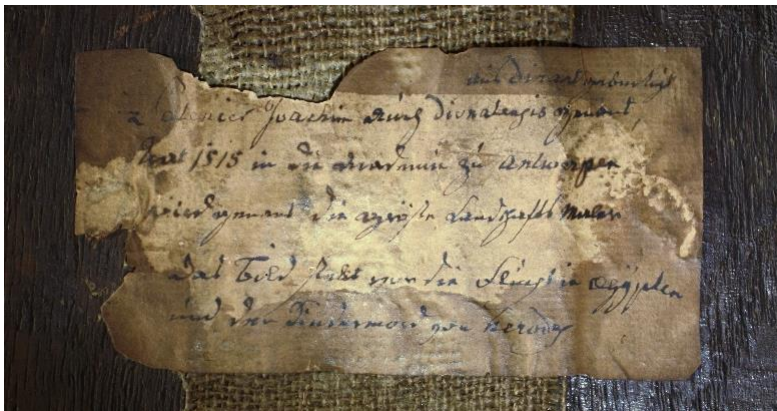 aus Dinant gebürtigt
Patenier Joachim auch dionatensis genant,
trat 1515 in die academie zu Antwerpen
wird genant die gröste Landschafts Maler
das Bild stelt vor die Flucht in Egÿpten
und der Kindermord von Herodes